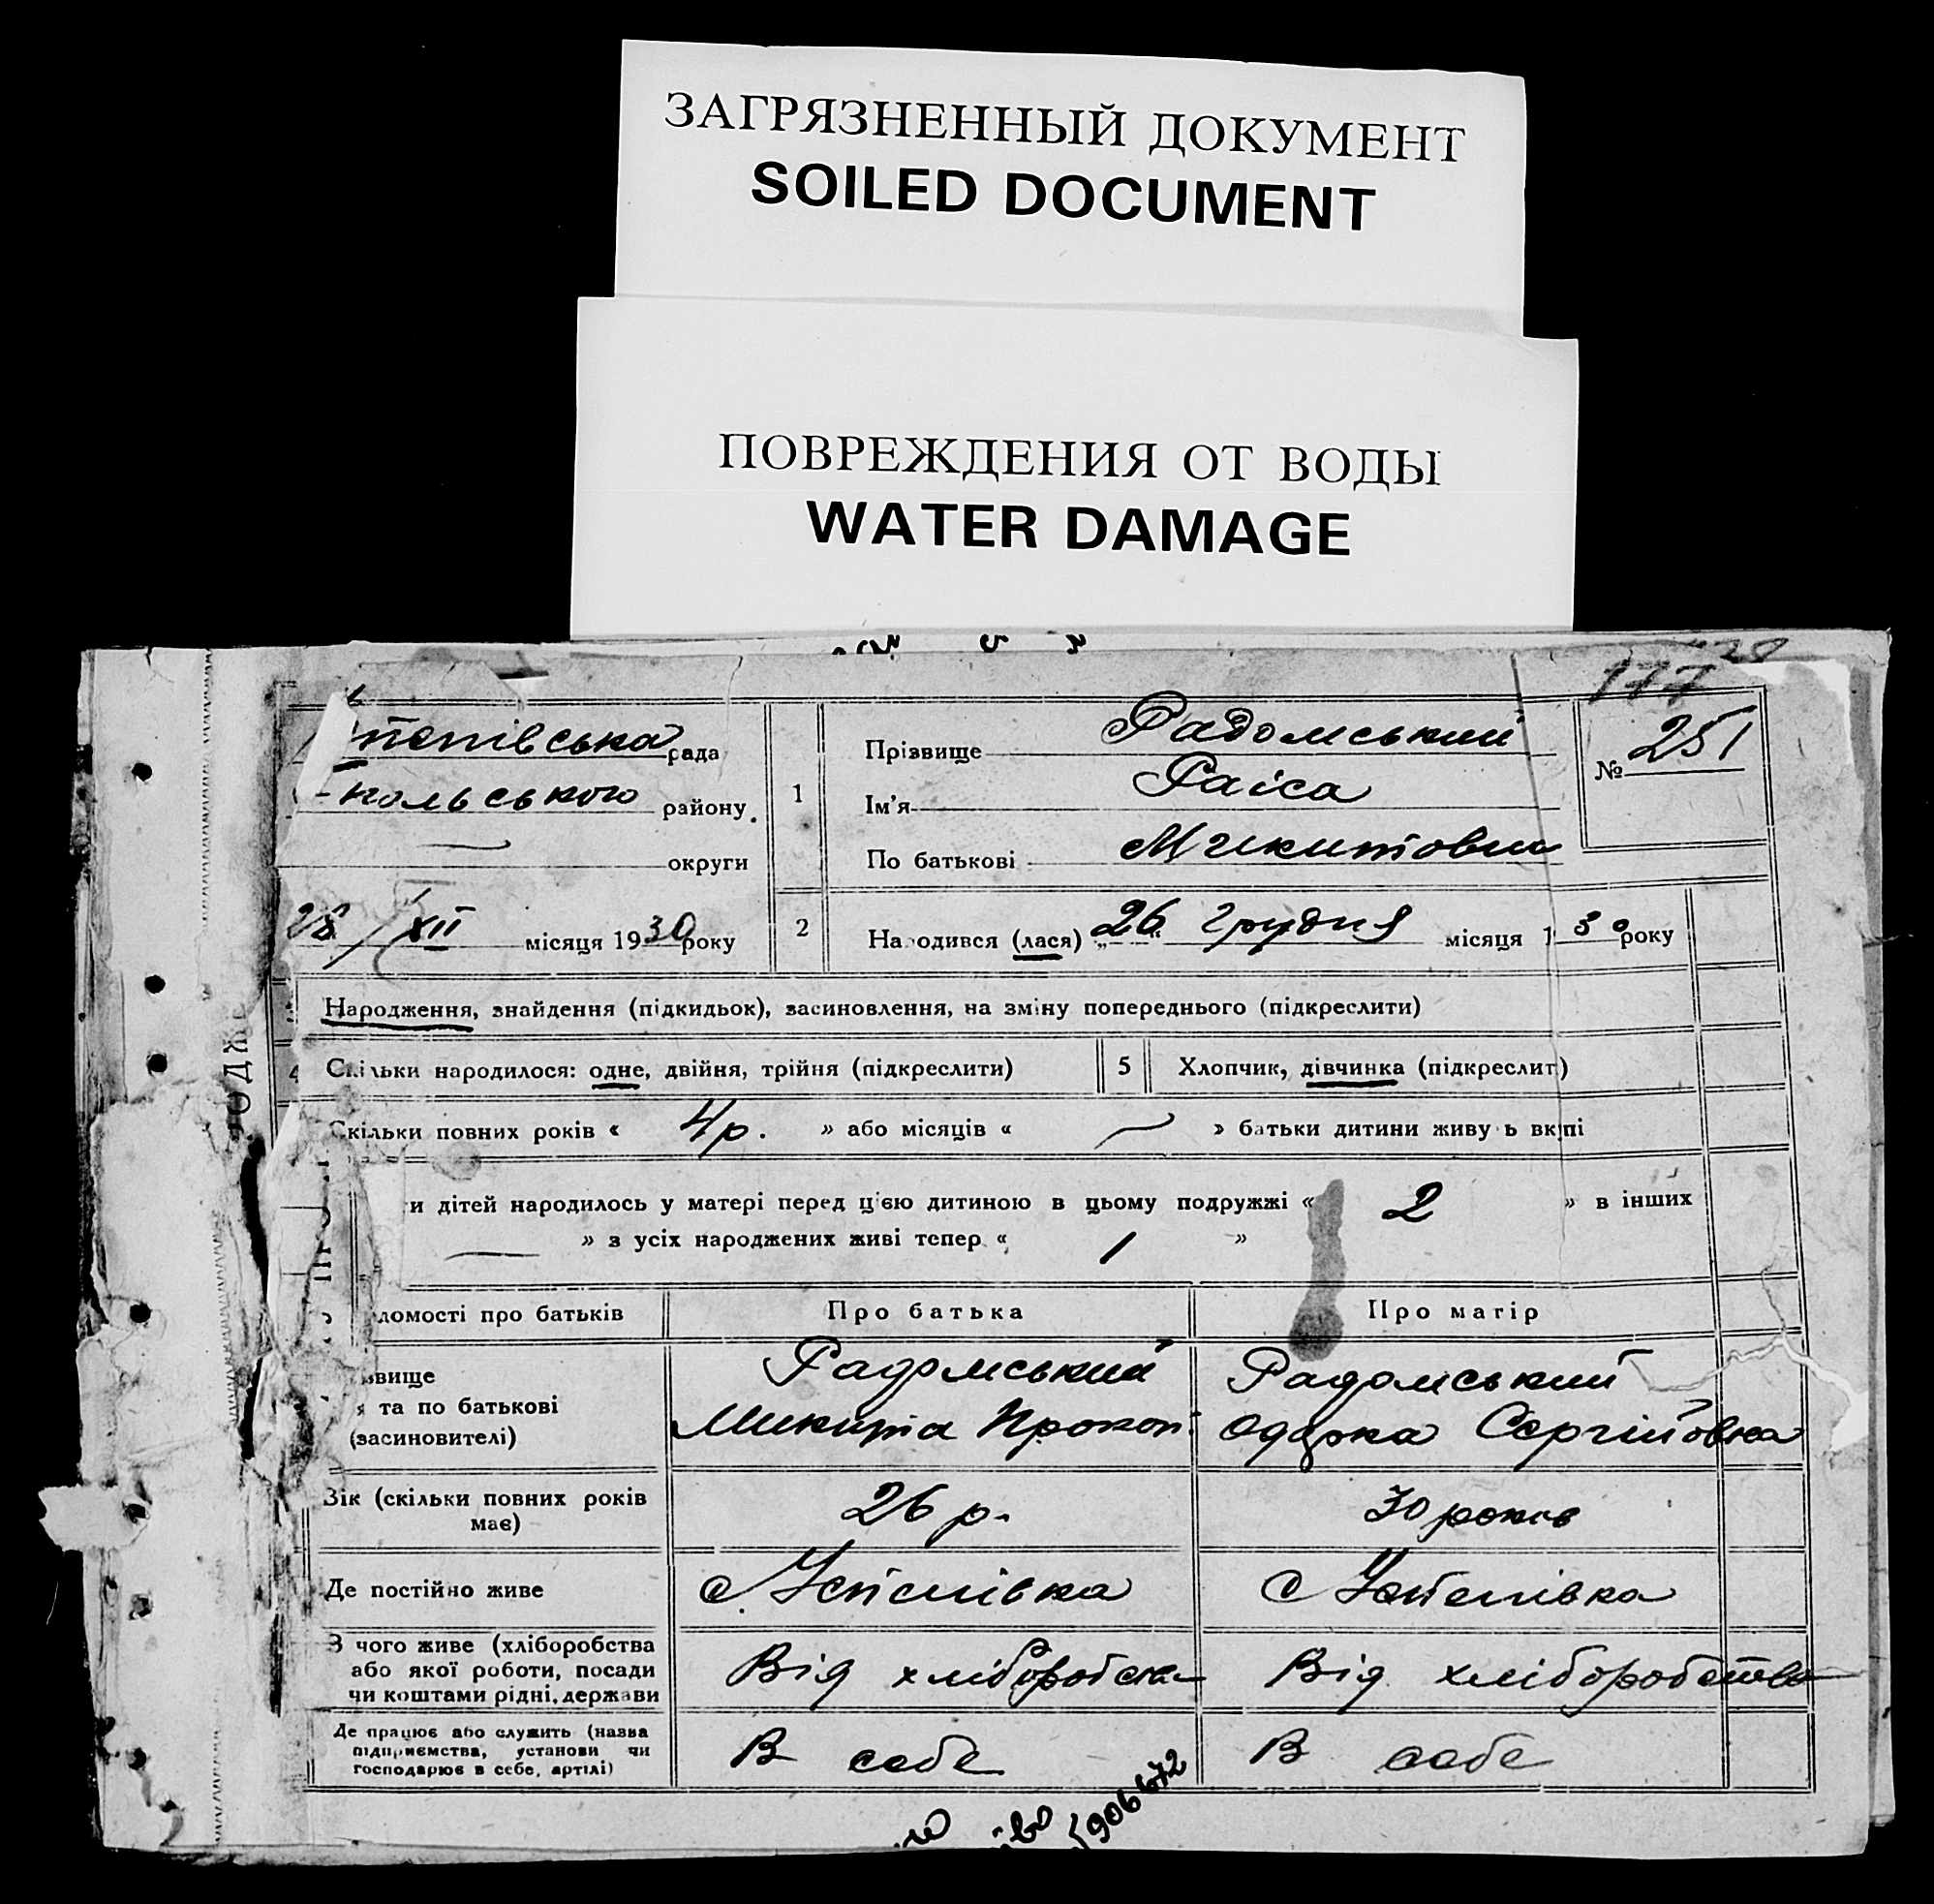 ЗАГРЯЗНЕННЫЙ ДОКУМЕНТ
SOILED DOCUMENT
ПОВРЕЖДЕНИЯ ОТ ВОДЫ
WATER DAMAGE
177
рада
-польського району
округи
28/XII місяця 1930 року
1
Прізвище Радомський
Ім'я Раіса
По батькові Микитовна
№ 251
2
Народився (лася) „26“ Грудня місяця 1 30 року
Народження, знайдення (підкидьок), засиновлення, на зміну попереднього (підкреслити)
4 Скільки народилося: одне, двійня, трійня (підкреслити)
5 Хлопчик, дівчинка (підкреслит)
Скільки повних років « 4 р. » або місяців « — » батьки дитини живуь вкпі
и дітей народилось у матері перед цією дитиною в цьому подружжі « 2 » в інших
— » з усіх народжених живі тепер « 1 »
домості про батьків
Про батька
Про матір
звище
я та по батькові
(засиновителі)
Радомський
Микита Прокоп.
Радомський
Одарка Сергійовна
Вік (скільки повних років
має)
26 р.
30 років
Де постійно живе
с. Устепівка
с Устепівка
З чого живе (хліборобства
або якої роботи, посади
чи коштами рідні, держави
Від хліборобства
Від хліборобства
Де працює або служить (назва
підприємства, установи чи
господарює в себе, артілі)
В себе
В себе
1906672